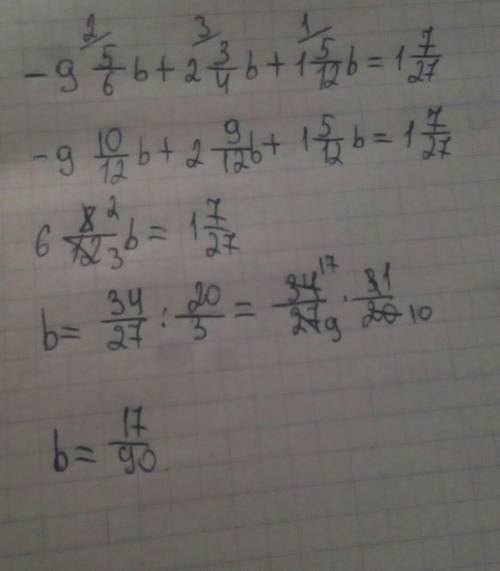 2/ 3/ 1/
-9 5/6 b + 2 3/4 b + 1 5/12 b = 1 7/27
-9 10/12 b + 2 9/12 b + 1 5/12 b = 1 7/27
6 8 2/12 3 b = 1 7/27
b = 34/27 : 20/3 = 34 17/27 9 · 3 1/20 10
b = 17/90